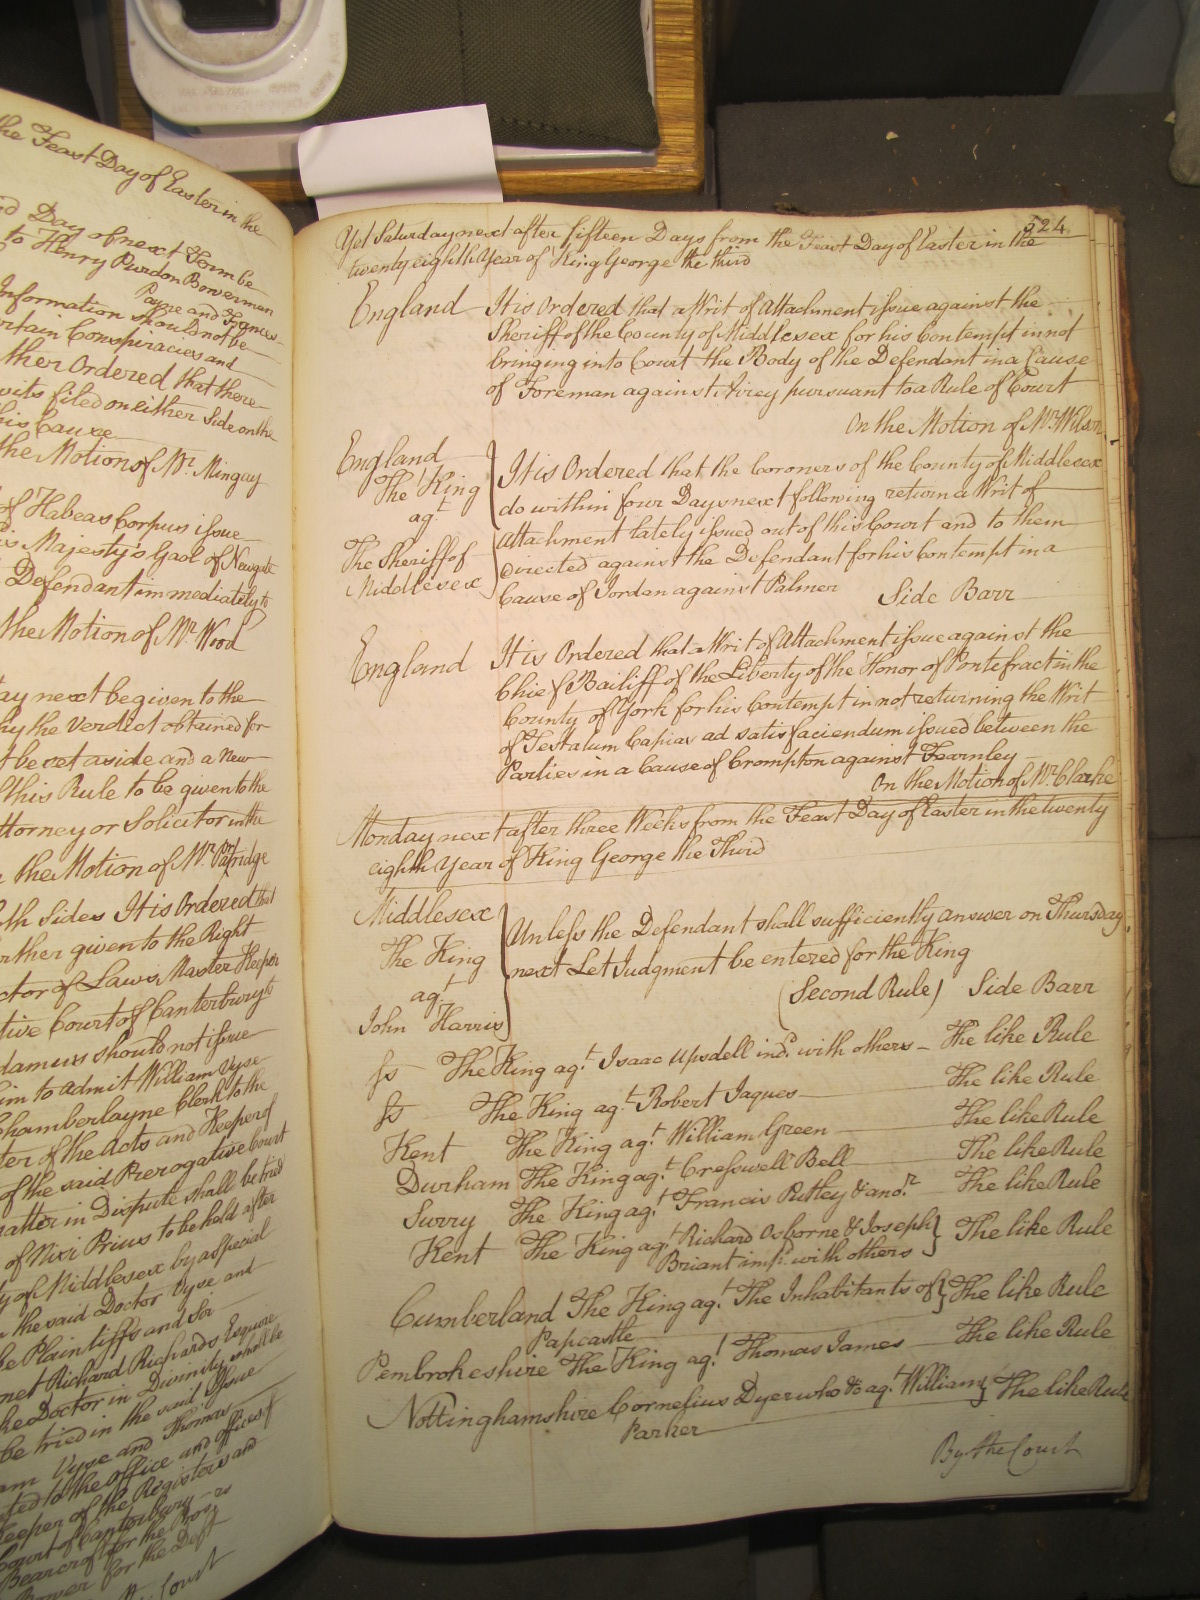 the Feast Day of Easter in the
Day of next Term be
to Henry Purdon Bowerman
Payne and Frances
Information should not be
certain Conspiracies and
ther Ordered that there
filed on either Side on the
his Cause
the Motion of Mr. Mingay
of Habeas Corpus issue
Majesty's Gaol of Newgate
Defendant immediately to
the Motion of Mr. Wood
next be given to the
why the Verdict obtained for
be set aside and a New
this Rule to be given to the
Attorney or Solicitor in the
the Motion of Mr. Partridge
both Sides It is Ordered that
further given to the Right
of Laws, Master Keeper
Court of Canterbury to
should not issue
to admit William Vyse
Chamberlayne Clerk to the
of the Acts and Keeper of
of the said Prerogative Court
matter in Dispute shall be tried
of Nisi Prius to be held after
of Middlesex by a Special
the said Doctor Vyse and
Plaintiffs and Sir
Richard Richards Esquire
Doctor in Divinity shall be
be tried in the said Issue
Vyse and Thomas
to the Office and Offices of
Keeper of the Registers and
Court of Canterbury
Bearcroft for the Pros
Bower for the Deft
Court
524
Yet Saturday next after fifteen Days from the Feast Day of Easter in the
twenty eighth Year of King George the third
England It is Ordered that a Writ of Attachment issue against the
Sheriff of the County of Middlesex for his Contempt in not
bringing into Court the Body of the Defendant in a Cause
of Foreman against Airey pursuant to a Rule of Court
On the Motion of Mr. Wilson
England
The King
agt.
The Sheriff of
Middlesex
It is Ordered that the Coroners of the County of Middlesex
do within four Days next following return a Writ of
Attachment lately issued out of this Court and to them
directed against the Defendant for his Contempt in a
Cause of Jordan against Palmer Side Barr
England It is Ordered that a Writ of Attachment issue against the
Chief Bailiff of the Liberty of the Honor of Pontefract in the
County of York for his Contempt in not returning the Writ
of Testatum Capias ad satisfaciendum issued between the
Parties in a Cause of Crompton against Fearnley
On the Motion of Mr. Clarke
Monday next after three Weeks from the Feast Day of Easter in the twenty
eighth Year of King George the Third
Middlesex
The King
agt.
John Harris
Unless the Defendant shall sufficiently answer on Thursday
next Let Judgment be entered for the King
(Second Rule) Side Barr
ss The King agt. Isaac Upsdell indd. with others The like Rule
ss The King agt. Robert Jaques The like Rule
Kent The King agt. William Green The like Rule
Durham The King agt. Cresswell Bell The like Rule
Surry The King agt. Francis Rutley & anor. The like Rule
Kent The King agt. Richard Osborne & Joseph
Briant impd. with others The like Rule
Cumberland The King agt. The Inhabitants of
Papcastle The like Rule
Pembrokeshire The King agt. Thomas James The like Rule
Nottinghamshire Cornelius Dyer who &c agt. William
Parker The like Rule
By the Court